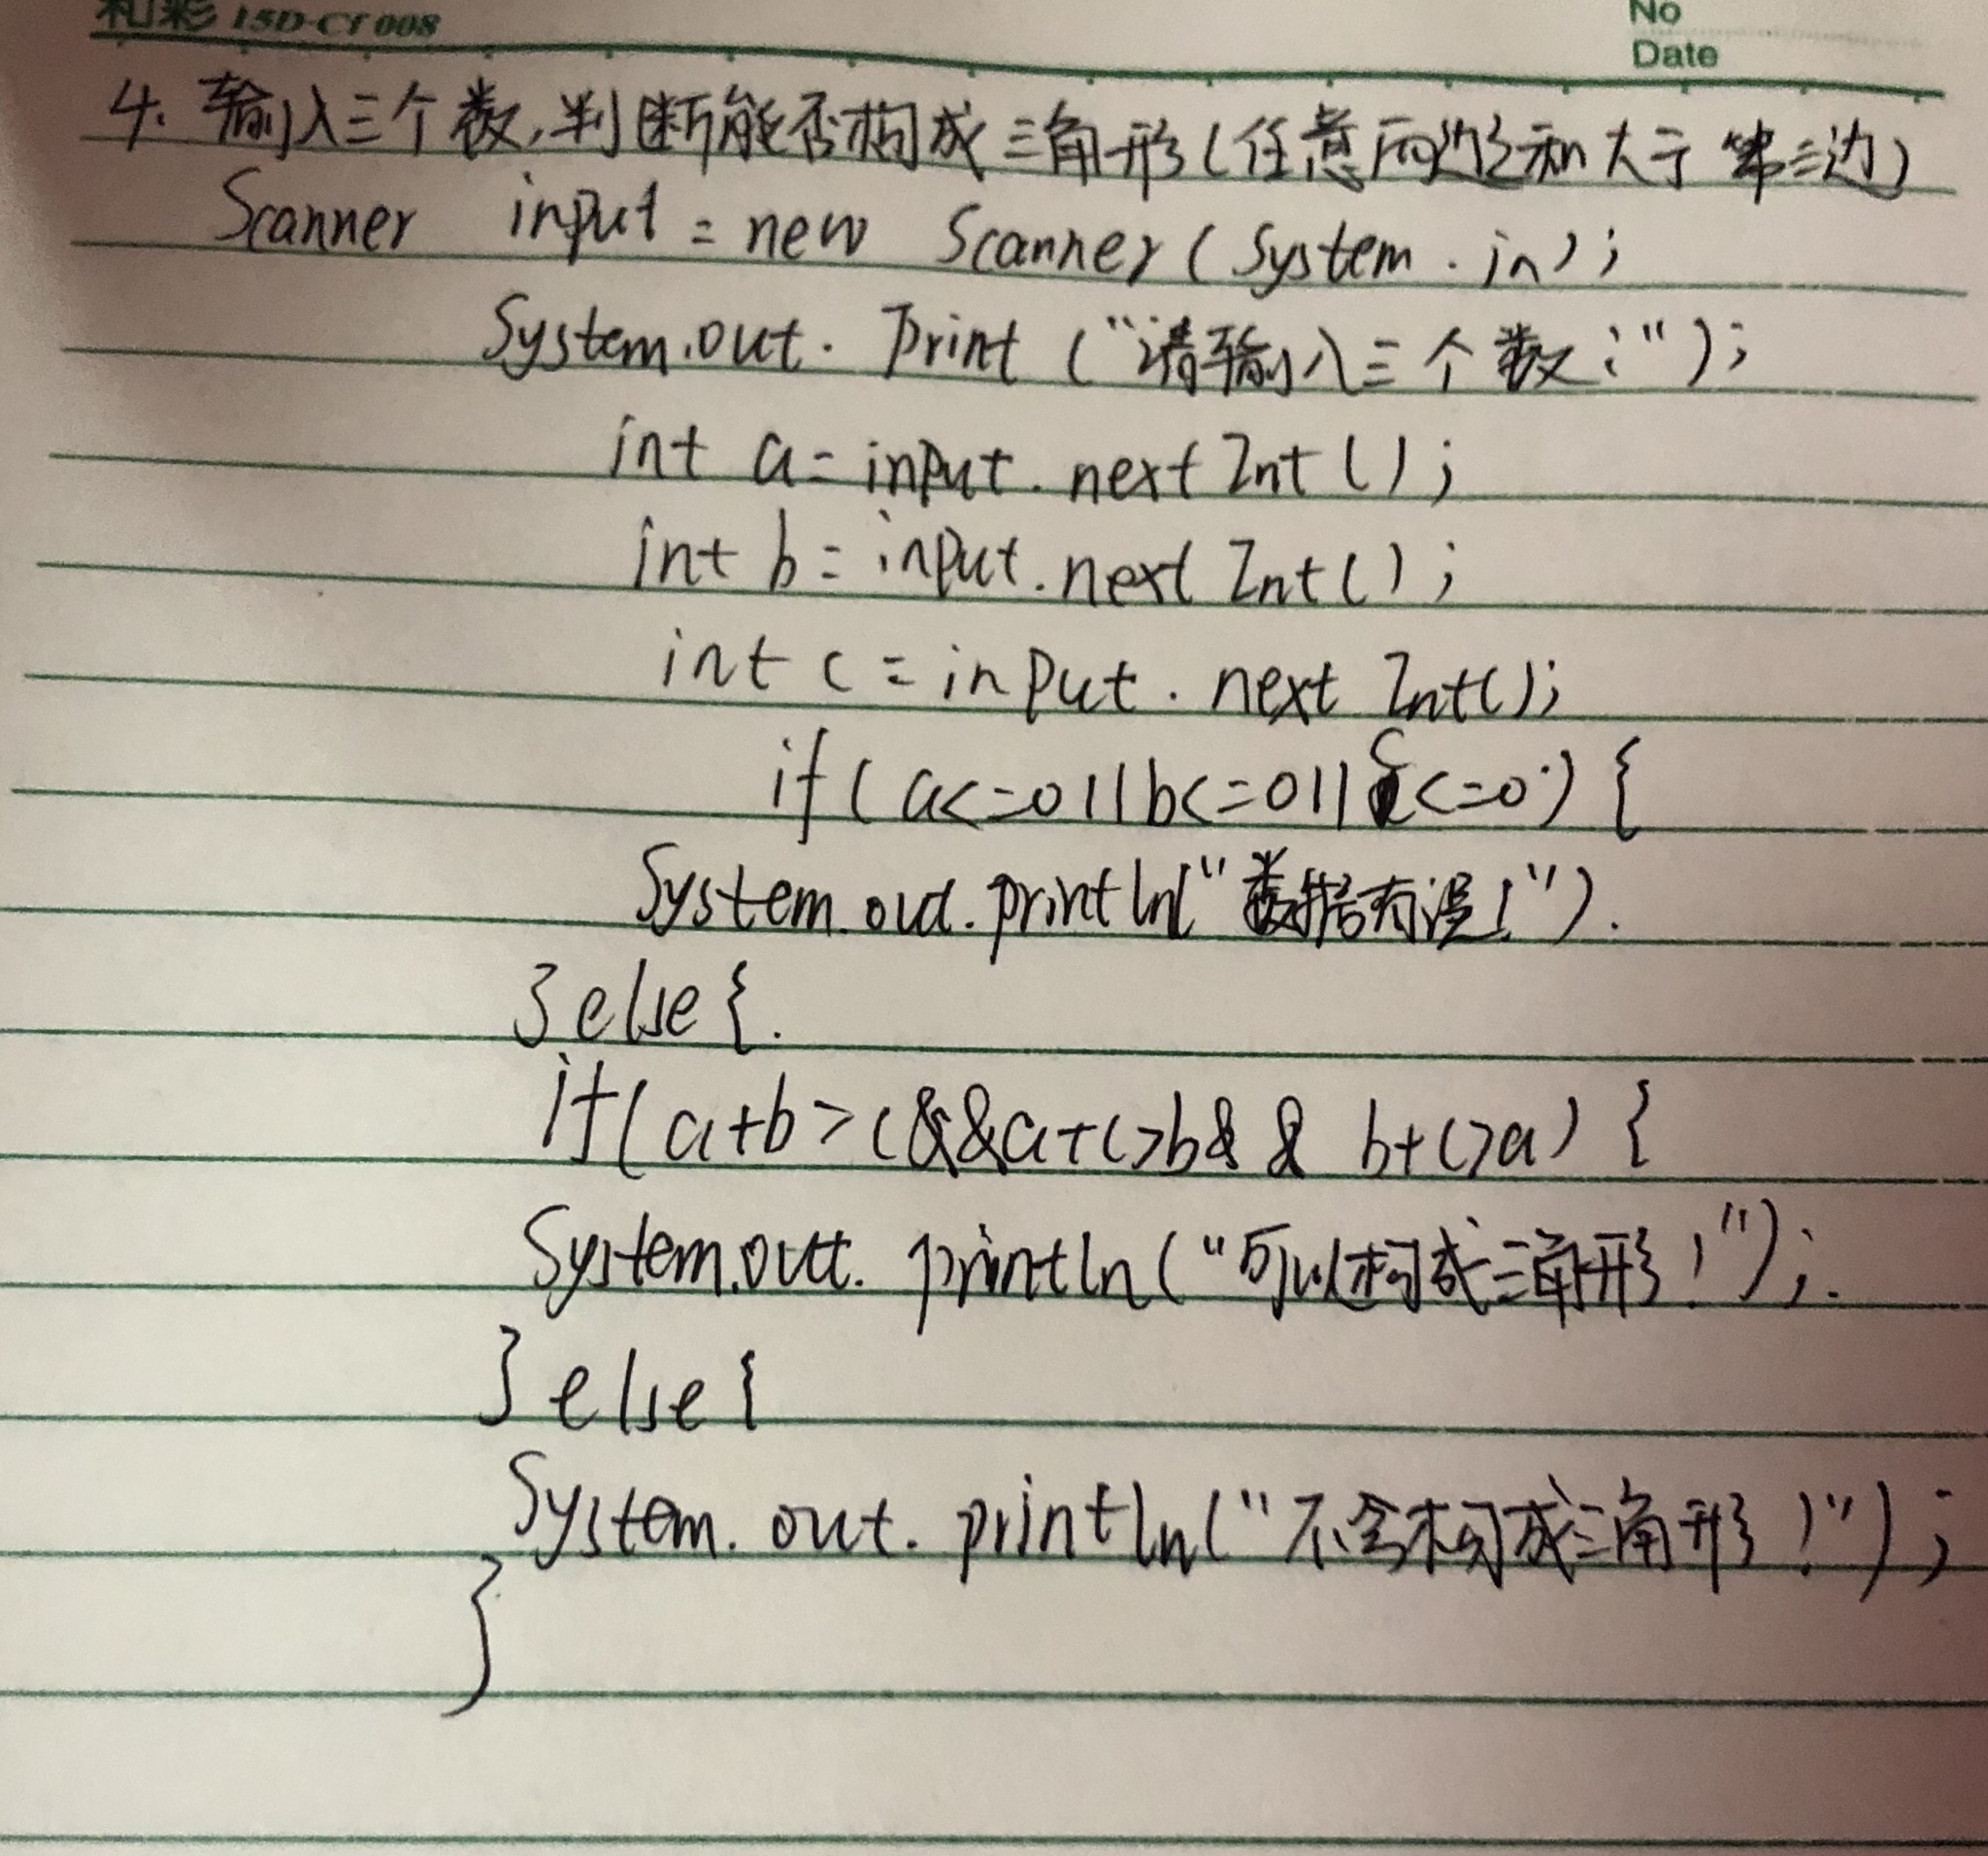 和彩 15D-CY008
No
Date
4. 输入三个数,判断能否构成三角形(任意两边和大于第三边)
Scanner input = new Scanner(System.in);
System.out.Print("请输入三个数:");
int a=input.nextInt();
int b=input.nextInt();
int c=input.nextInt();
if(a<=0||b<=0||c<=0){
System.out.println("数据有误!").
}else{.
if(a+b>c&&a+c>b&&b+c>a){
System.out.println("可以构成三角形!");.
}else{
System.out.println("不会构成三角形!");
}